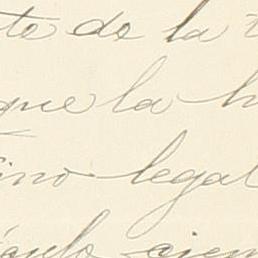 te de la
que la h
ino legal
ículo cien